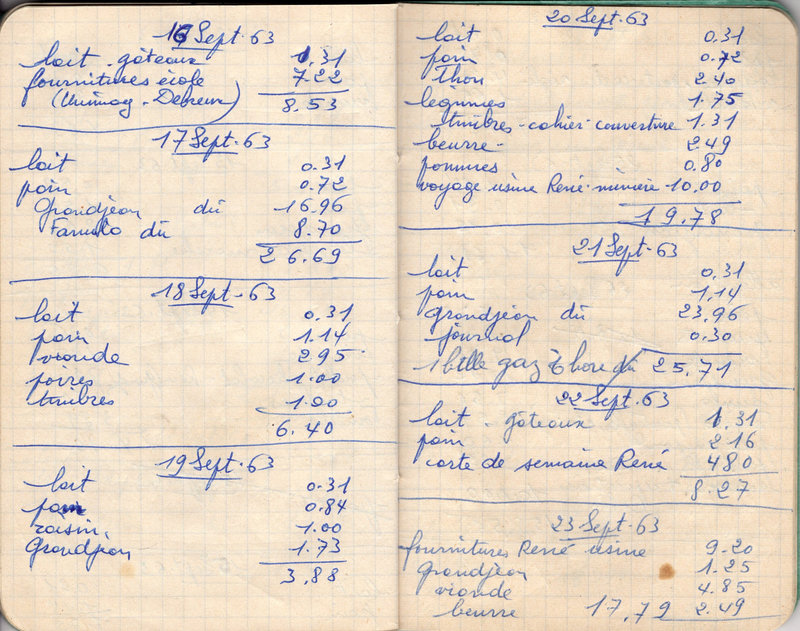 16 Sept. 63
lait - gâteaux 1.31
fournitures école 7.22
8.53
17 Sept. 63
lait 0.31
pain 0.72
Grandjean dû 16.96
Familo dû 8.70
26.69
18 Sept. 63
lait 0.31
pain 1.14
viande 295
poires 1.00
timbres 1.00
6.40
19 Sept. 63
lait 0.31
pain 0.84
raisin 1.00
Grandjean 1.73
3.88
20 Sept. 63
lait 0.31
pain 0.72
thon 2.40
légumes 1.75
timbres - cahier - couverture 1.31
beurre - 2.49
pommes 0.80
voyage usine René minière 10.00
19.78
21 Sept. 63
lait 0.31
pain 1.14
grandjean dû 23.96
journal 0.30
1 btlle gaz dû 25.71
22 Sept. 63
lait - gâteaux 1.31
pain 216
carte de semaine René 480
8.27
23 Sept. 63
fournitures René usine 9.20
grandjean 1.25
viande 4.85
beurre 17,79 2.49